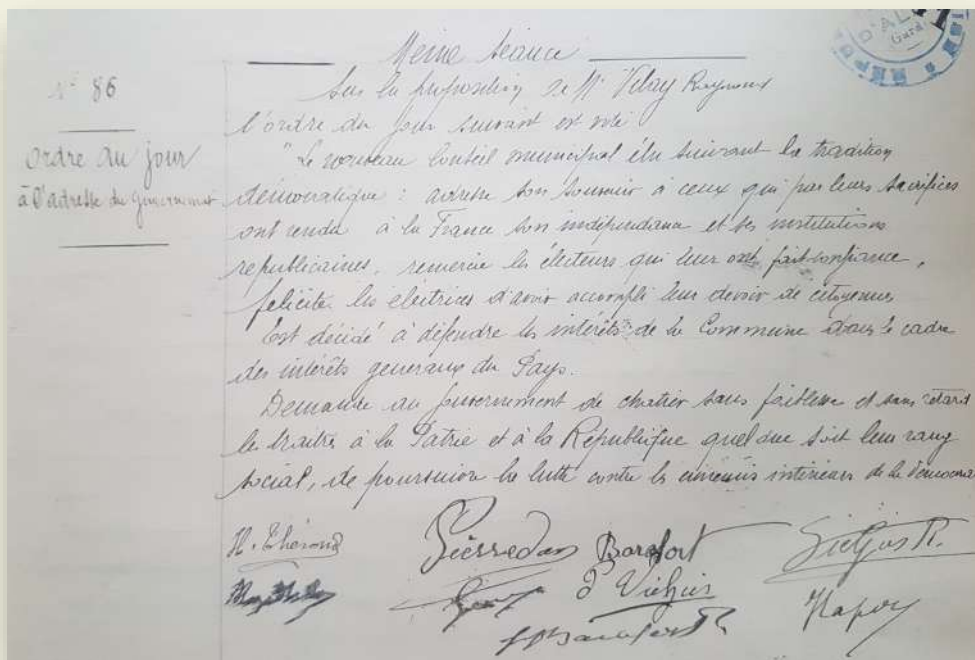 Même séance
N° 86
Sur la proposition de Mr Velay Raymond
l'ordre du jour suivant est voté
ordre du jour
à l'adresse du gouvernement
"Le nouveau Conseil municipal élu suivant la tradition
démocratique : adresse son souvenir à ceux qui par leurs sacrifices
ont rendu à la France son indépendance et ses institutions
republicaines, remercie les électeurs qui leur ont fait confiance,
félicite les électrices d'avoir accompli leur devoir de citoyennes
Est décidé à défendre les intérêts de la Commune dans le cadre
des intérêts generaux du Pays.
Demande au gouvernement de chatier sans faiblesse et sans retard
les traitres à la Patrie et à la République quel que soit leur rang
social, de poursuivre la lutte contre les ennemis intérieurs de la
H. Thérond
Barafort
Gard